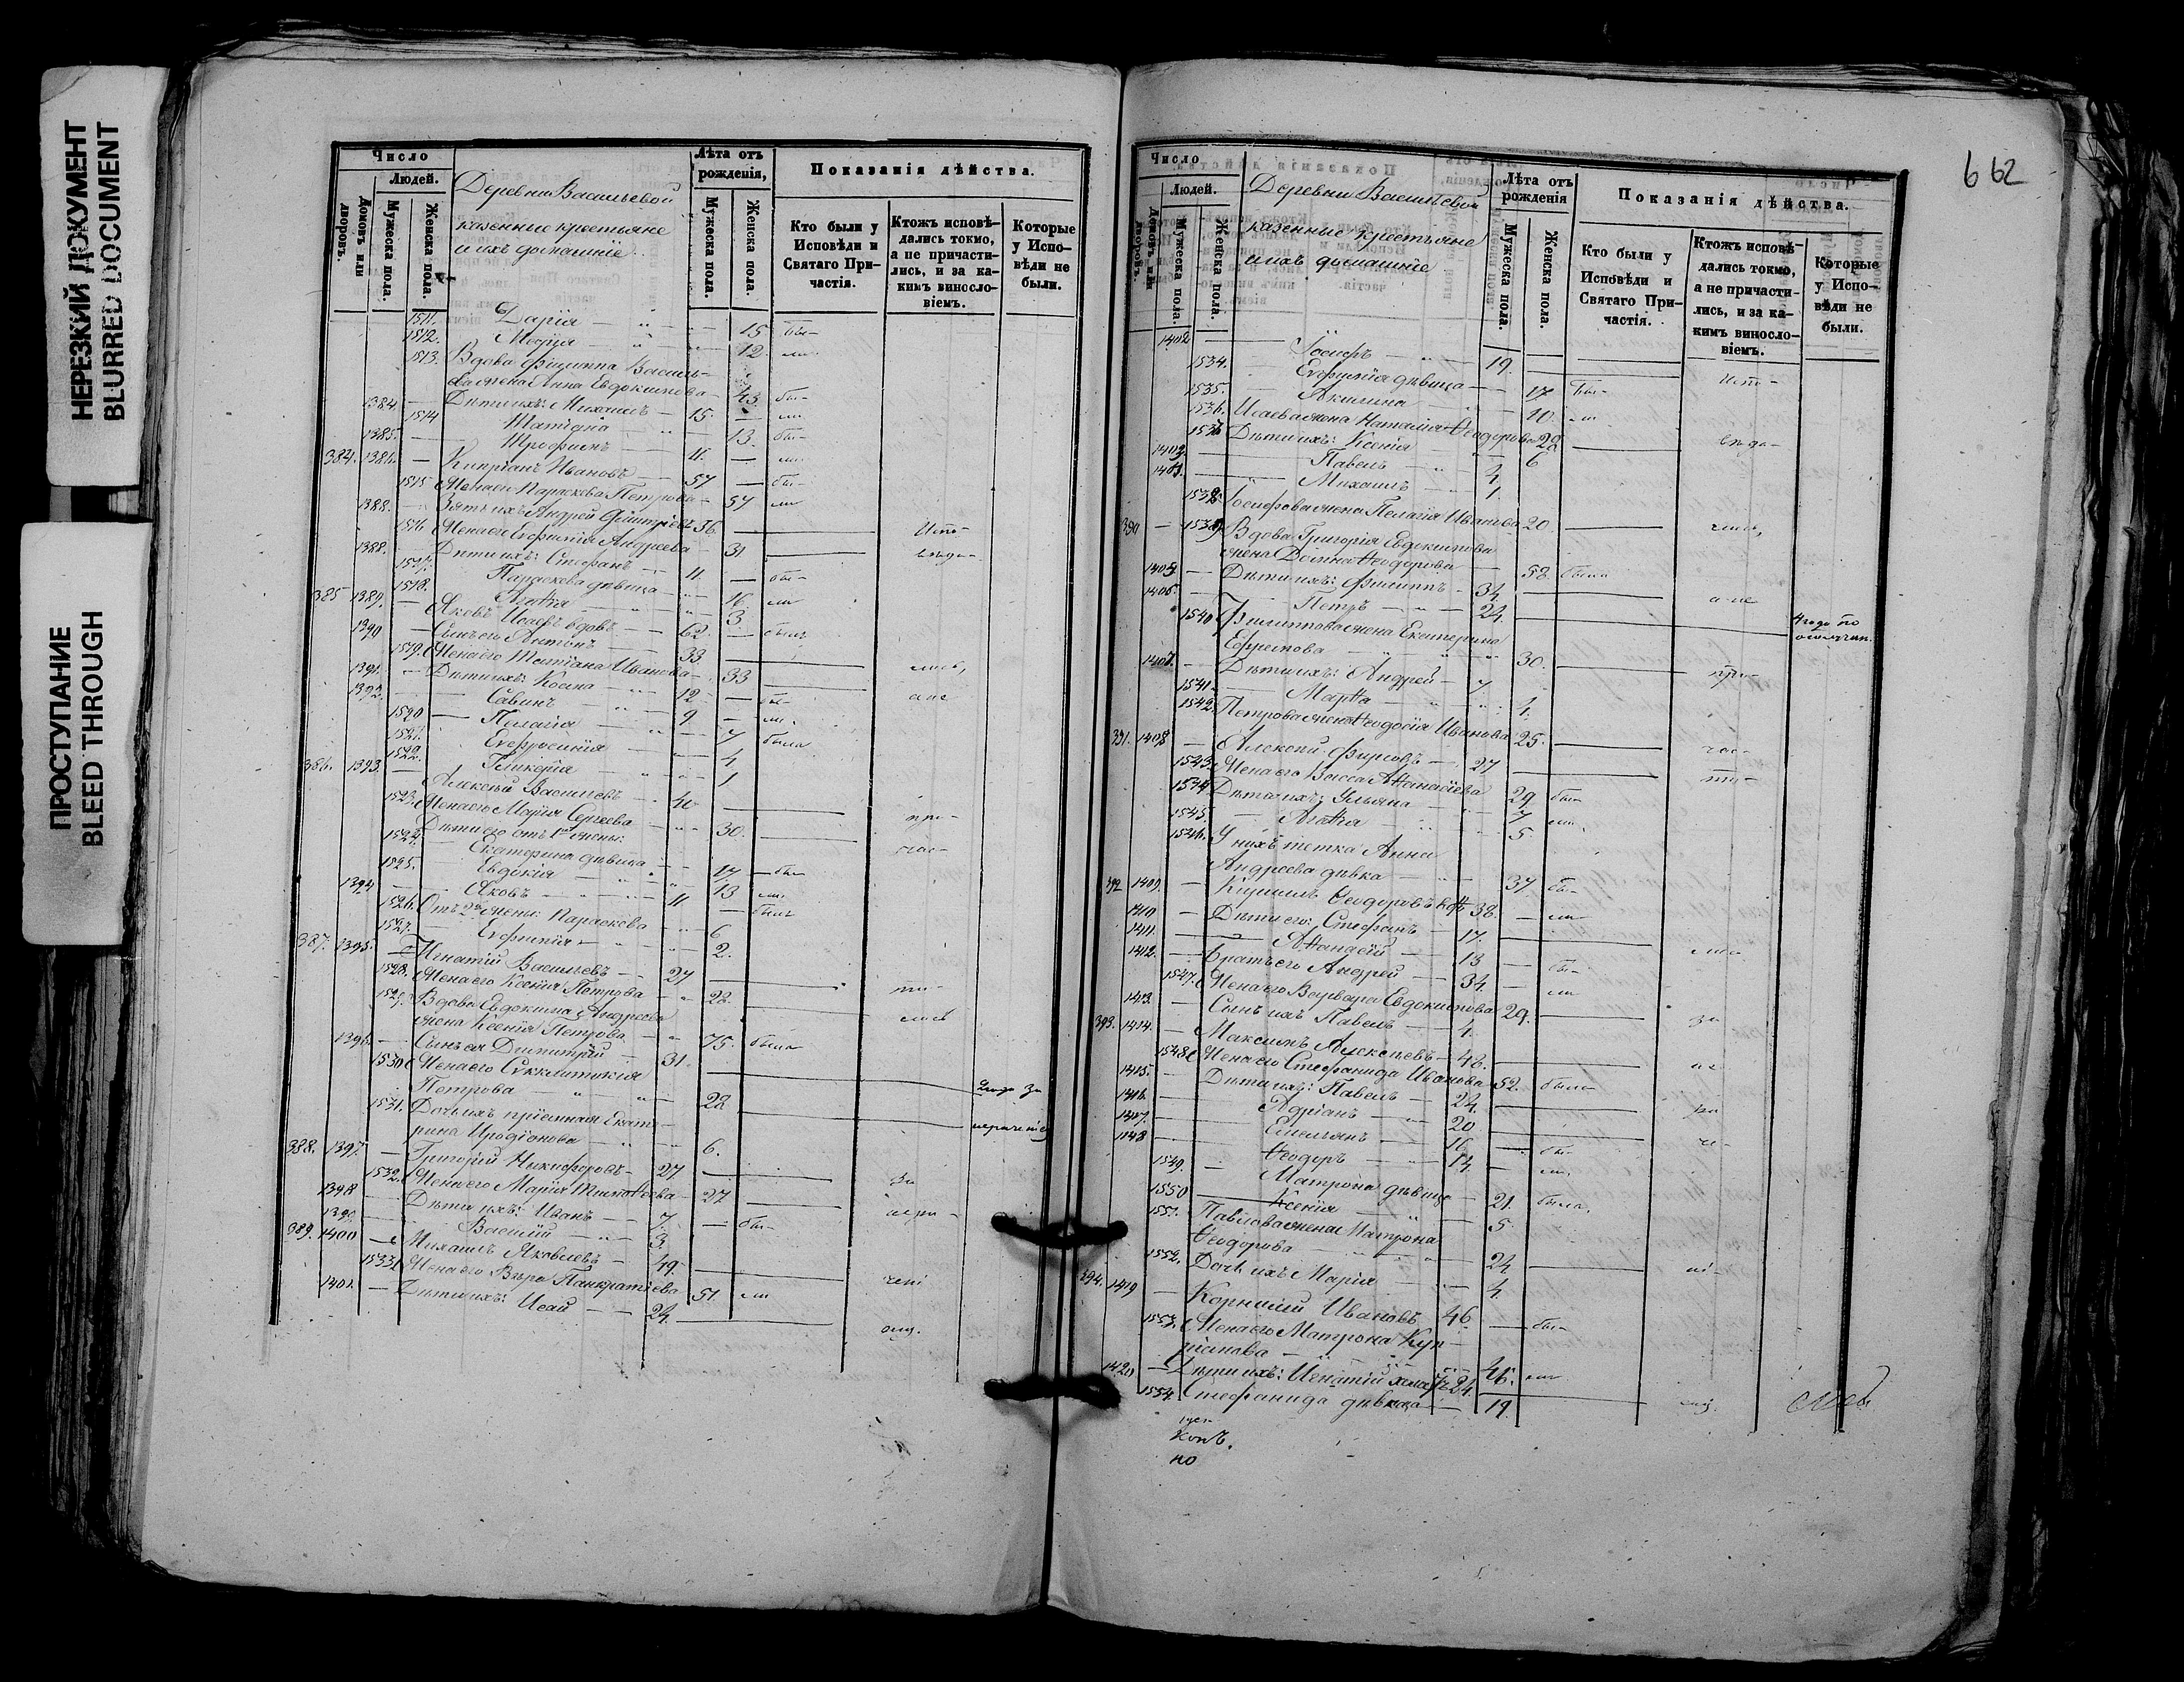 НЕРЕЗКИЙ ДОКУМЕНТ
BLURRED DOCUMENT
ПРОСТУПАНИЕ
BLEED THROUGH
Число
Людей.
Домовъ или дворовъ.
Мужеска пола.
Женска пола.
Деревни Васильевой
казенные крестьяне
и ихъ домашніе
Лѣта отъ рожденія,
Мужеска пола.
Женска пола.
Показанія дѣйства.
Кто были у Исповѣди и Святаго Причастія.
Ктожъ исповѣдались токмо, а не причастились, и за какимъ винословіемъ.
Которые у Исповѣди не были.
1511. Дарія — " — 15 бы-
1512. Марія — " — 12 ли
1513. Вдова Филиппа Василь-
ева жена Анна Евдокимова 43 бы-
1384. Дѣти ихъ: Михаилъ — 15. ли
1514 Татіана — " 13. бы-
1385. Трофимъ — 11. ли
384. 1386. Кипріанъ Ивановъ — 57 бы-
1515 Жена его Параскева Петрова 57 ли
1388. Зять ихъ Андрей Димитріевъ 36. Испо-
1516 Жена его Евфимія Андреева 31 вѣда-
1388. Дѣти ихъ: Стефанъ — 11. бы-
1517. Параскева дѣвица — 16 ли
1518. Агаѳія — " — 3
385 1389. Яковъ Исаевъ вдовъ — 62. былъ
1390 Сынъ его Антонъ — 33 лись,
1519. Жена его Татіана Иванова 33 а не
1391. Дѣти ихъ: Косма — 12 бы-
1392. Савинъ — " — 9 ли.
1520 Пелагія — " — 7 была
1521. Евфросинія — 4
1522. Гликерія — " — 1
386. 1393. Алексѣй Васильевъ — 40 при-
1523. Жена его Марія Сергеева 30. час-
Дѣти его отъ 1й жены:
1524. Екатерина дѣвица — 17 бы-
1525. Евдокія — " — 13 ли.
1394 Яковъ — " — 11 былъ
1526. Отъ 2й жены: Параскева — 6
1527. Евфимія — " — 2.
387. 1395. Игнатій Васильевъ — 27 ти-
1528. Жена его Ксенія Петрова 22. лись
1529. Вдова Евдокима Андреева
жена Ксенія Петрова — 75. была
1396. Сынъ ея Димитрій — 31.
1530 Жена его Сунклитикія
Петрова — " — 22
1531. Дочь ихъ пріемная Екате-
рина Иродіонова — " — 6.
388. 1397. Григорій Никифоровъ — 27. за
1532. Жена его Марія Тимоѳеева 27
1398 Дѣти ихъ: Иванъ — 7. бы-
1399 Василій — " — 3.
389. 1400 Михаилъ Яковлевъ — 49.
1533 Жена его Вѣра Панкратіева 51. ли
1401. Дѣти ихъ: Исай — 24.
662
Число
Людей.
Домовъ или дворовъ.
Мужеска пола.
Женска пола.
Деревни Васильевой
казенные крестьяне
и ихъ домашніе
Лѣта отъ рожденія
Мужеска пола.
Женска пола.
Показанія дѣйства.
Кто были у Исповѣди и Святаго Причастія.
Ктожъ исповѣдались токмо, а не причастились, и за какимъ винословіемъ.
Которые у Исповѣди не были.
1402 Іосифъ — " — 19. Испо-
1534. Евфимія дѣвица — 17 бы-
1535. Акилина — 10. ли
1536. Исаева жена Наталія Ѳеодорова 22 вѣда-
1537 Дѣти ихъ: Ксенія — 6
1403 Павелъ — " — 4
1404. Михаилъ — 1.
1538. Іосифова жена Пелагія Иванова 20. лись,
390 1539 Вдова Григорія Евдокимова
жена Домна Ѳеодорова — 58 была
1405 Дѣти ихъ: Филиппъ — 34. а не
1406. Петръ — " — 24.
1540 Филиппова жена Екатерина
Ефремова — " — 30. при-
1407. Дѣти ихъ: Андрей — 7
1541. Марѳа — " — 4.
1542. Петрова жена Ѳеодосія Иванова 25. час-
391. 1408 Алексѣй Фирсовъ — 27 ти-
1543. Жена его Васса Аѳанасіева 29. бы-
1544 Дѣти ихъ: Ульяна — 7 ли.
1545. Агаѳія — " — 5.
1546. У нихъ тетка Анна
Андреева дѣвка — " — 37 бы-
392 1409. Кириллъ Ѳеодоровъ вдовъ 38. ли
1410 Дѣти его: Стефанъ — 17. лись
1411. Аѳанасій — 13 бы-
1412. Братъ его Андрей — 34. ли
1547. Жена его Варвара Евдокимова 29. за
1413. Сынъ ихъ Павелъ — 4.
393. 1414. Максимъ Алексѣевъ — 48.
1548 Жена его Стефанида Иванова 52. была
1415. Дѣти ихъ: Павелъ — 24.
1416. Адріанъ — " — 20.
1417. Емельянъ — 16. бы-
1418 Ѳеодоръ — " — 14. ли.
1549. Матрона дѣвица — 21. была.
1550 Ксенія — " — 5.
1551. Павлова жена Матрона
Ѳеодорова — " — 24
1552. Дочь ихъ Марія — 4.
394. 1419 Корнилій Ивановъ 46. бы-
1553. Жена его Матрона Куп-
ріанова — 46. ли
1420 Дѣти ихъ: Игнатій холостъ 24.
1554. Стефанида дѣвица — 19.